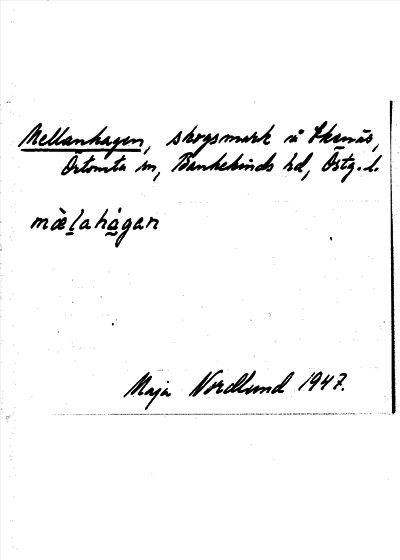 Mellanhagen, skogsmark å Ekenäs,
Örtomta sn, Bankekinds hd, Östg. l.
mæ̀l̠ahá̠gan
Maja Nordlund 1947.